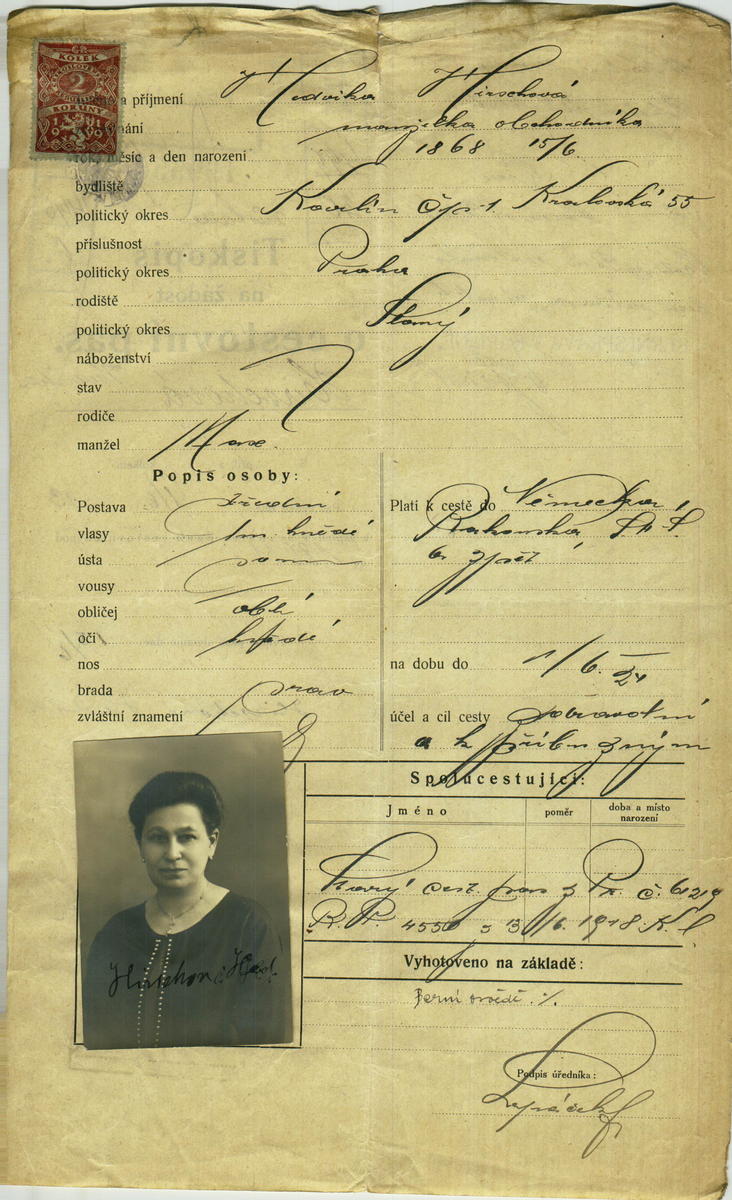 KOLEK
2
KORUNY
19 19
a příjmení Hedvika Hirschová
manželka obchodníka
rok, měsíc a den narození 1868 15/6
bydliště
politický okres Karlín čp. 1. Královská 55
příslušnost
politický okres Praha
rodiště
politický okres Slaný
náboženství
stav
rodiče
manžel Max
Popis osoby:
Postava střední
vlasy tm. hnědé
ústa
vousy
obličej oblý
oči hnědé
nos
brada
zvláštní znamení
Platí k cestě do Německa,
Rakouska
a zpět
na dobu do 1/6. 24
účel a cil cesty zdravotní
a k příbuzným
Spolucestující:
Jméno poměr doba a místo narození
Starý cest. pas z č. 61219
4550 z 13/6. 1918
Vyhotoveno na základě:
Podpis úředníka: